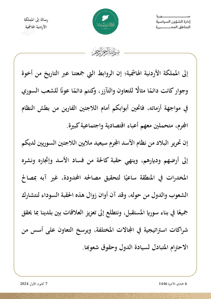 رسالة إلى المملكة
الأردنية الهاشمية
إدارة الشؤون السياسية
بسم الله الرحمن الرحيم
إلى المملكة الأردنية الهاشمية: إن الروابط التي جمعتنا عبر التاريخ من أخوة
وجوار كانت دائمًا مثالًا للتعاون والتآزر، وكنتم دائمًا عونًا للشعب السوري
في مواجهة أزماته، فاتحين أبوابكم أمام اللاجئين الفارين من بطش النظام
المجرم، متحملين معهم أعباء اقتصادية واجتماعية كبيرة.
إن تحرير البلاد من نظام الأسد المجرم سيعيد ملايين اللاجئين السوريين لديكم
إلى أرضهم وديارهم، وينهي حقبة كالحة من فساد الأسد وإتجاره ونشره
المخدرات في المنطقة ساعيًا لتحقيق مصالحه المحدودة، غير آبه بمصالح
الشعوب والدول من حوله، وقد آن أوان زوال هذه الحقبة السوداء لنتشارك
جميعًا في بناء سوريا المستقبل، ونتطلع إلى تعزيز العلاقات بين بلدينا بما يحقق
شراكات استراتيجية في المجالات المختلفة، ويرسخ التعاون على أسس من
الاحترام المتبادل لسيادة الدول وحقوق شعوبها.
6 جمادى الآخرة 1446
7 كانون الأول 2024